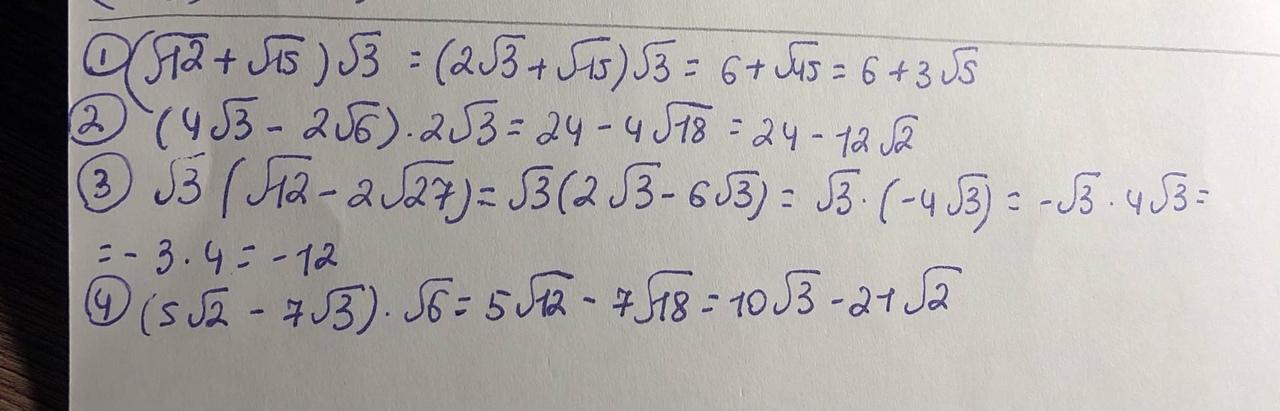 ① (√12 + √15)√3 = (2√3 + √15)√3 = 6 + √45 = 6 + 3√5
② (4√3 - 2√6) · 2√3 = 24 - 4√18 = 24 - 12√2
③ √3 (√12 - 2√27) = √3(2√3 - 6√3) = √3 · (-4√3) = -√3 · 4√3 =
= - 3 · 4 = -12
④ (5√2 - 7√3) · √6 = 5√12 - 7√18 = 10√3 - 21√2